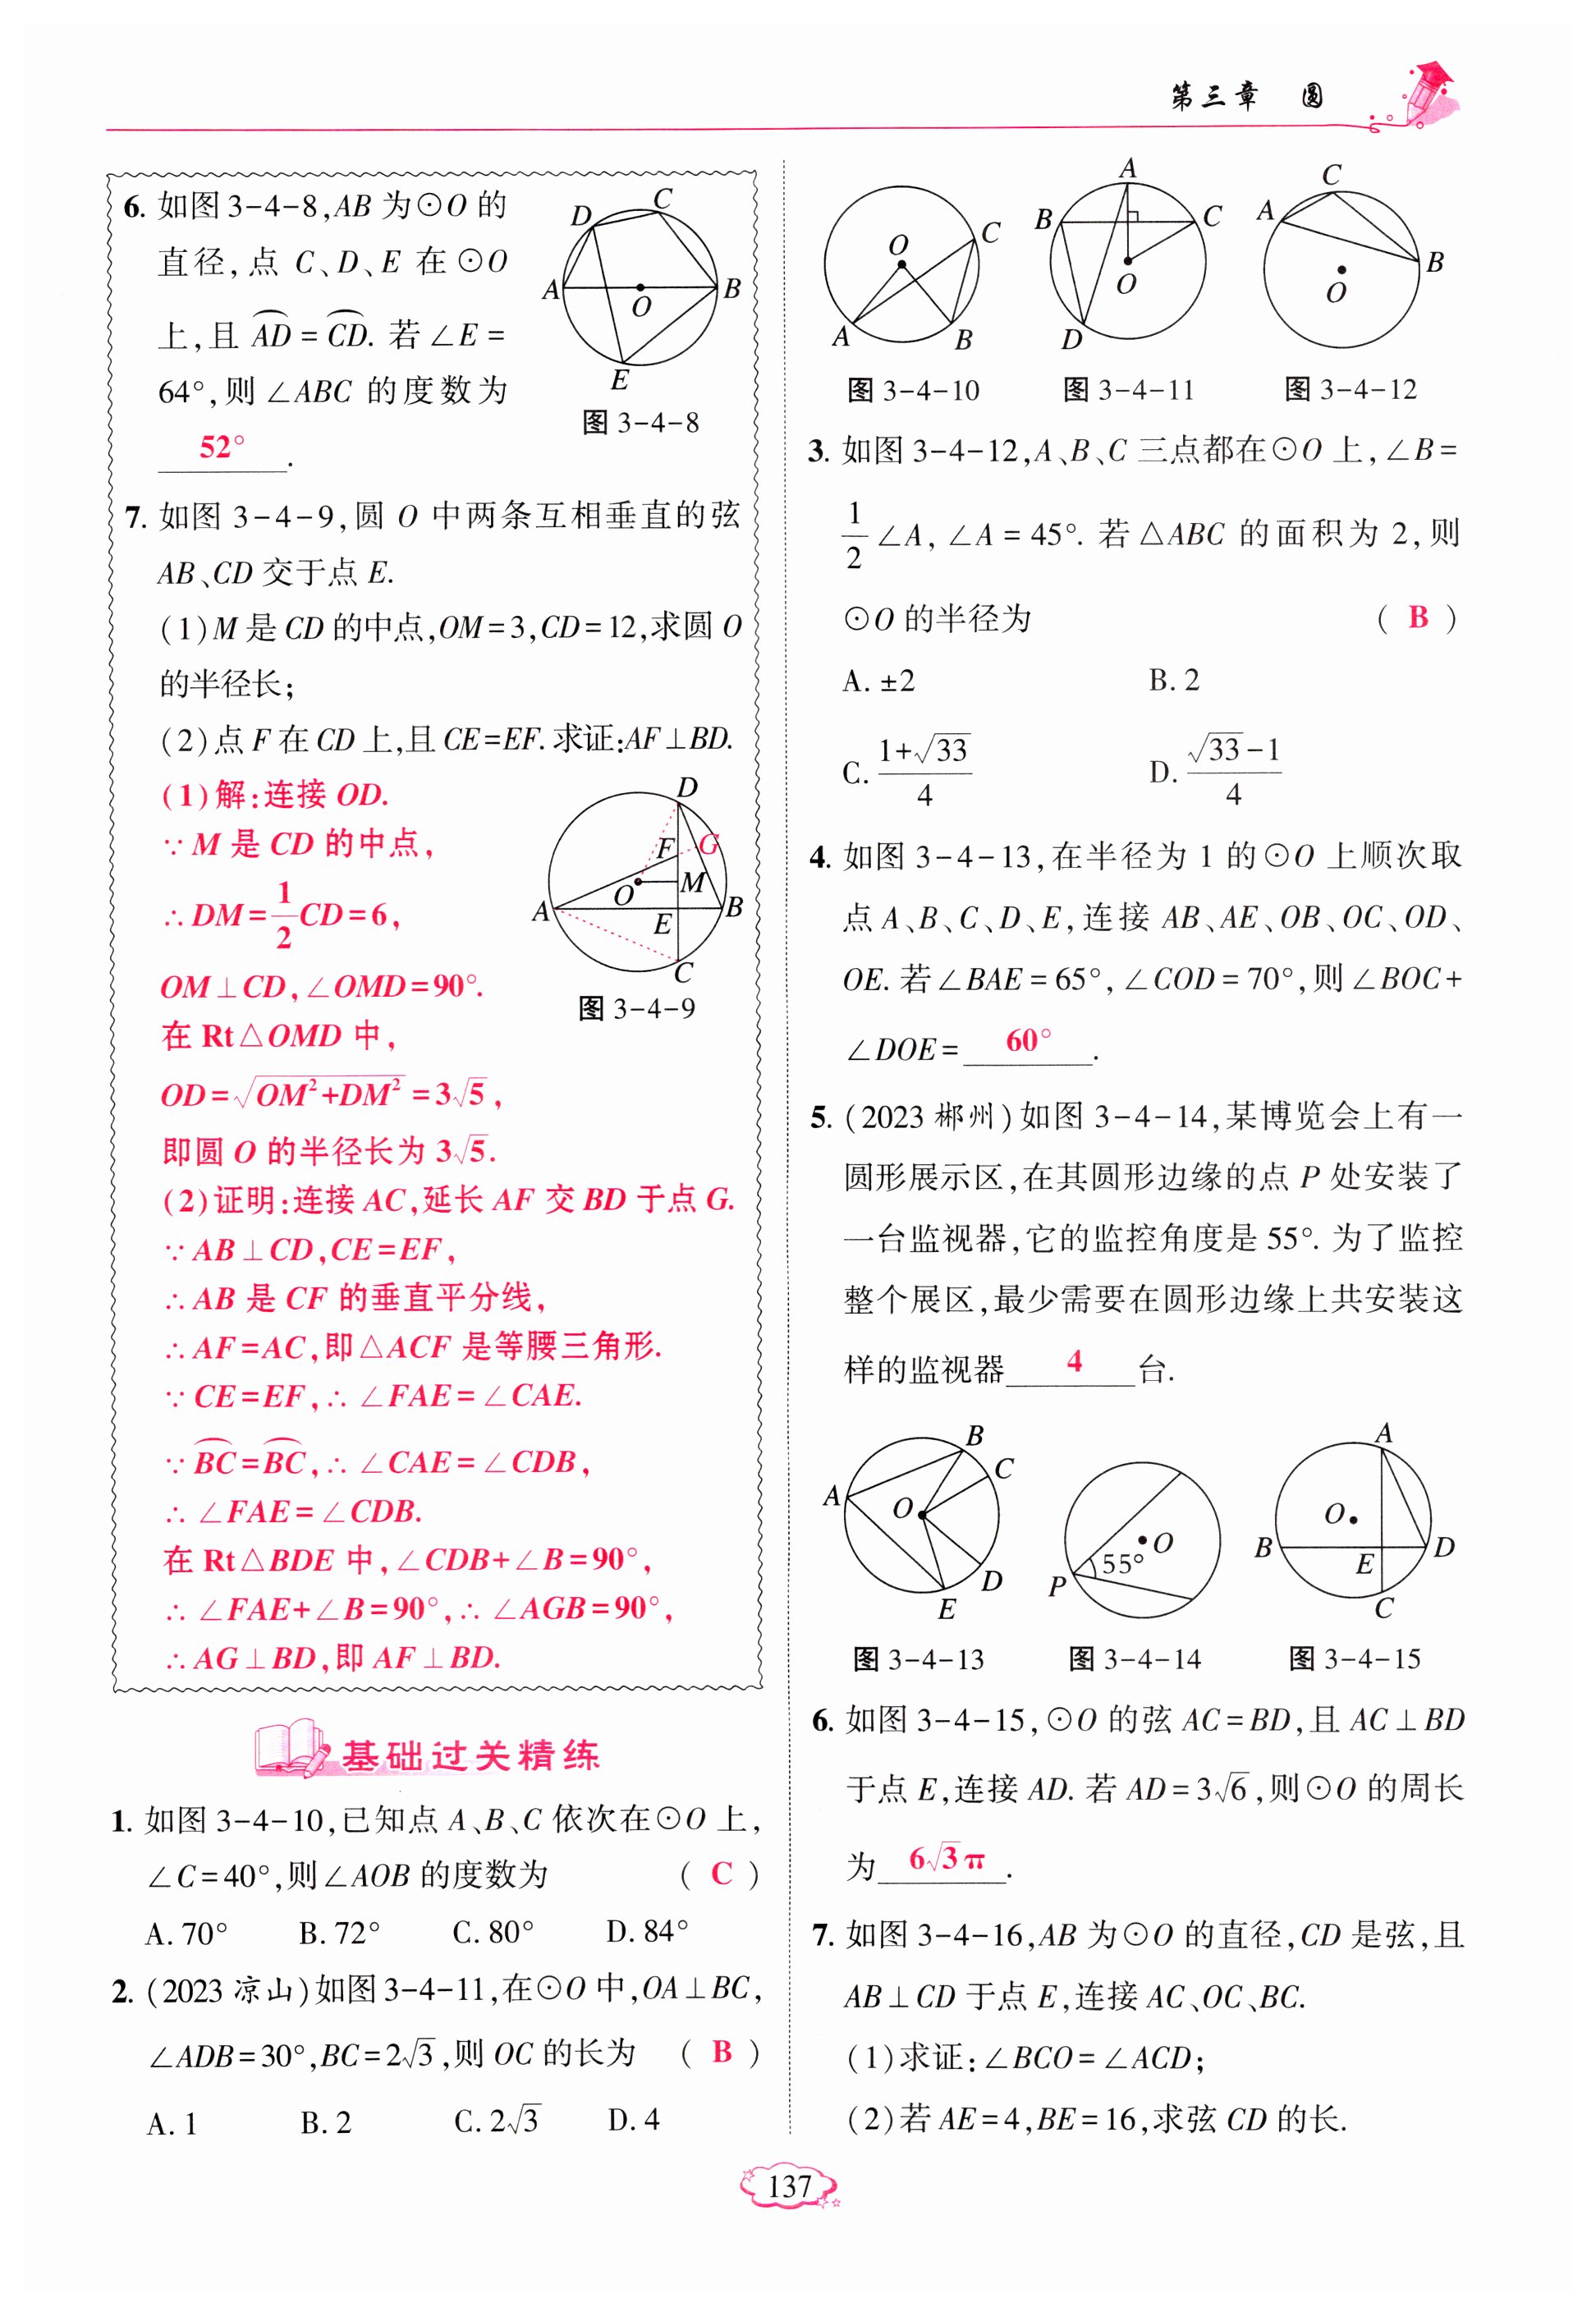 第三章 圆
6. 如图3-4-8,AB为⊙O的
直径,点 C、D、E 在⊙O
上,且 A͡D = C͡D. 若∠E =
64°,则∠ABC 的度数为
52°.
D
C
A
O
B
E
图 3-4-8
7. 如图 3-4-9,圆 O 中两条互相垂直的弦
AB、CD 交于点 E.
(1)M 是 CD 的中点,OM=3,CD=12,求圆 O
的半径长;
(2)点 F 在 CD 上,且 CE=EF. 求证:AF⊥BD.
(1)解:连接 OD.
∵M 是 CD 的中点,
∴DM=1/2CD=6,
OM⊥CD,∠OMD=90°.
在 Rt△OMD 中,
OD=√(OM²+DM²)=3√5,
即圆 O 的半径长为 3√5.
(2)证明:连接 AC,延长 AF 交 BD 于点 G.
∵AB⊥CD,CE=EF,
∴AB 是 CF 的垂直平分线,
∴AF=AC,即△ACF 是等腰三角形.
∵CE=EF,∴∠FAE=∠CAE.
∵B͡C=B͡C,∴∠CAE=∠CDB,
∴∠FAE=∠CDB.
在 Rt△BDE 中,∠CDB+∠B=90°,
∴∠FAE+∠B=90°,∴∠AGB=90°,
∴AG⊥BD,即 AF⊥BD.
D
F
G
O
M
A
B
E
C
图 3-4-9
基础过关精练
1. 如图 3-4-10,已知点 A、B、C 依次在⊙O 上,
∠C=40°,则∠AOB 的度数为 ( C )
A. 70° B. 72° C. 80° D. 84°
2. (2023 凉山)如图3-4-11,在⊙O 中,OA⊥BC,
∠ADB=30°,BC=2√3,则 OC 的长为 ( B )
A. 1 B. 2 C. 2√3 D. 4
O
C
A
B
图 3-4-10
A
B
C
O
D
图 3-4-11
C
A
B
O
图 3-4-12
3. 如图 3-4-12,A、B、C 三点都在⊙O 上,∠B=
1/2∠A,∠A=45°. 若△ABC 的面积为 2,则
⊙O 的半径为 ( B )
A. ±2 B. 2
C. (1+√33)/4 D. (√33-1)/4
4. 如图 3-4-13,在半径为 1 的⊙O 上顺次取
点 A、B、C、D、E,连接 AB、AE、OB、OC、OD、
OE. 若∠BAE=65°,∠COD=70°,则∠BOC+
∠DOE= 60°.
5. (2023 郴州)如图 3-4-14,某博览会上有一
圆形展示区,在其圆形边缘的点 P 处安装了
一台监视器,它的监控角度是 55°. 为了监控
整个展区,最少需要在圆形边缘上共安装这
样的监视器 4 台.
B
C
A
O
D
E
图 3-4-13
O
55°
P
图 3-4-14
A
O
B
E
D
C
图 3-4-15
6. 如图 3-4-15,⊙O 的弦 AC=BD,且 AC⊥BD
于点 E,连接 AD. 若 AD=3√6,则⊙O 的周长
为 6√3π.
7. 如图 3-4-16,AB 为⊙O 的直径,CD 是弦,且
AB⊥CD 于点 E,连接 AC、OC、BC.
(1)求证:∠BCO=∠ACD;
(2)若 AE=4,BE=16,求弦 CD 的长.
137